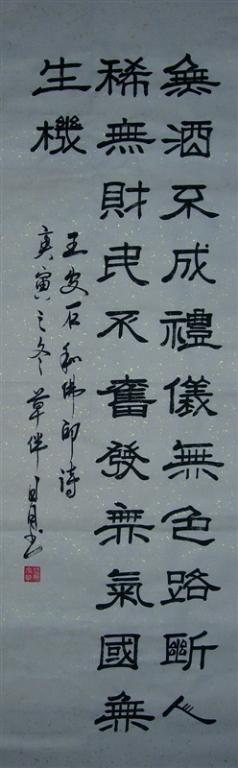 無酒不成禮儀無色路斷人
稀無財民不奮發無氣國無
生機
王安石和佛印詩
庚寅之冬草伴月書